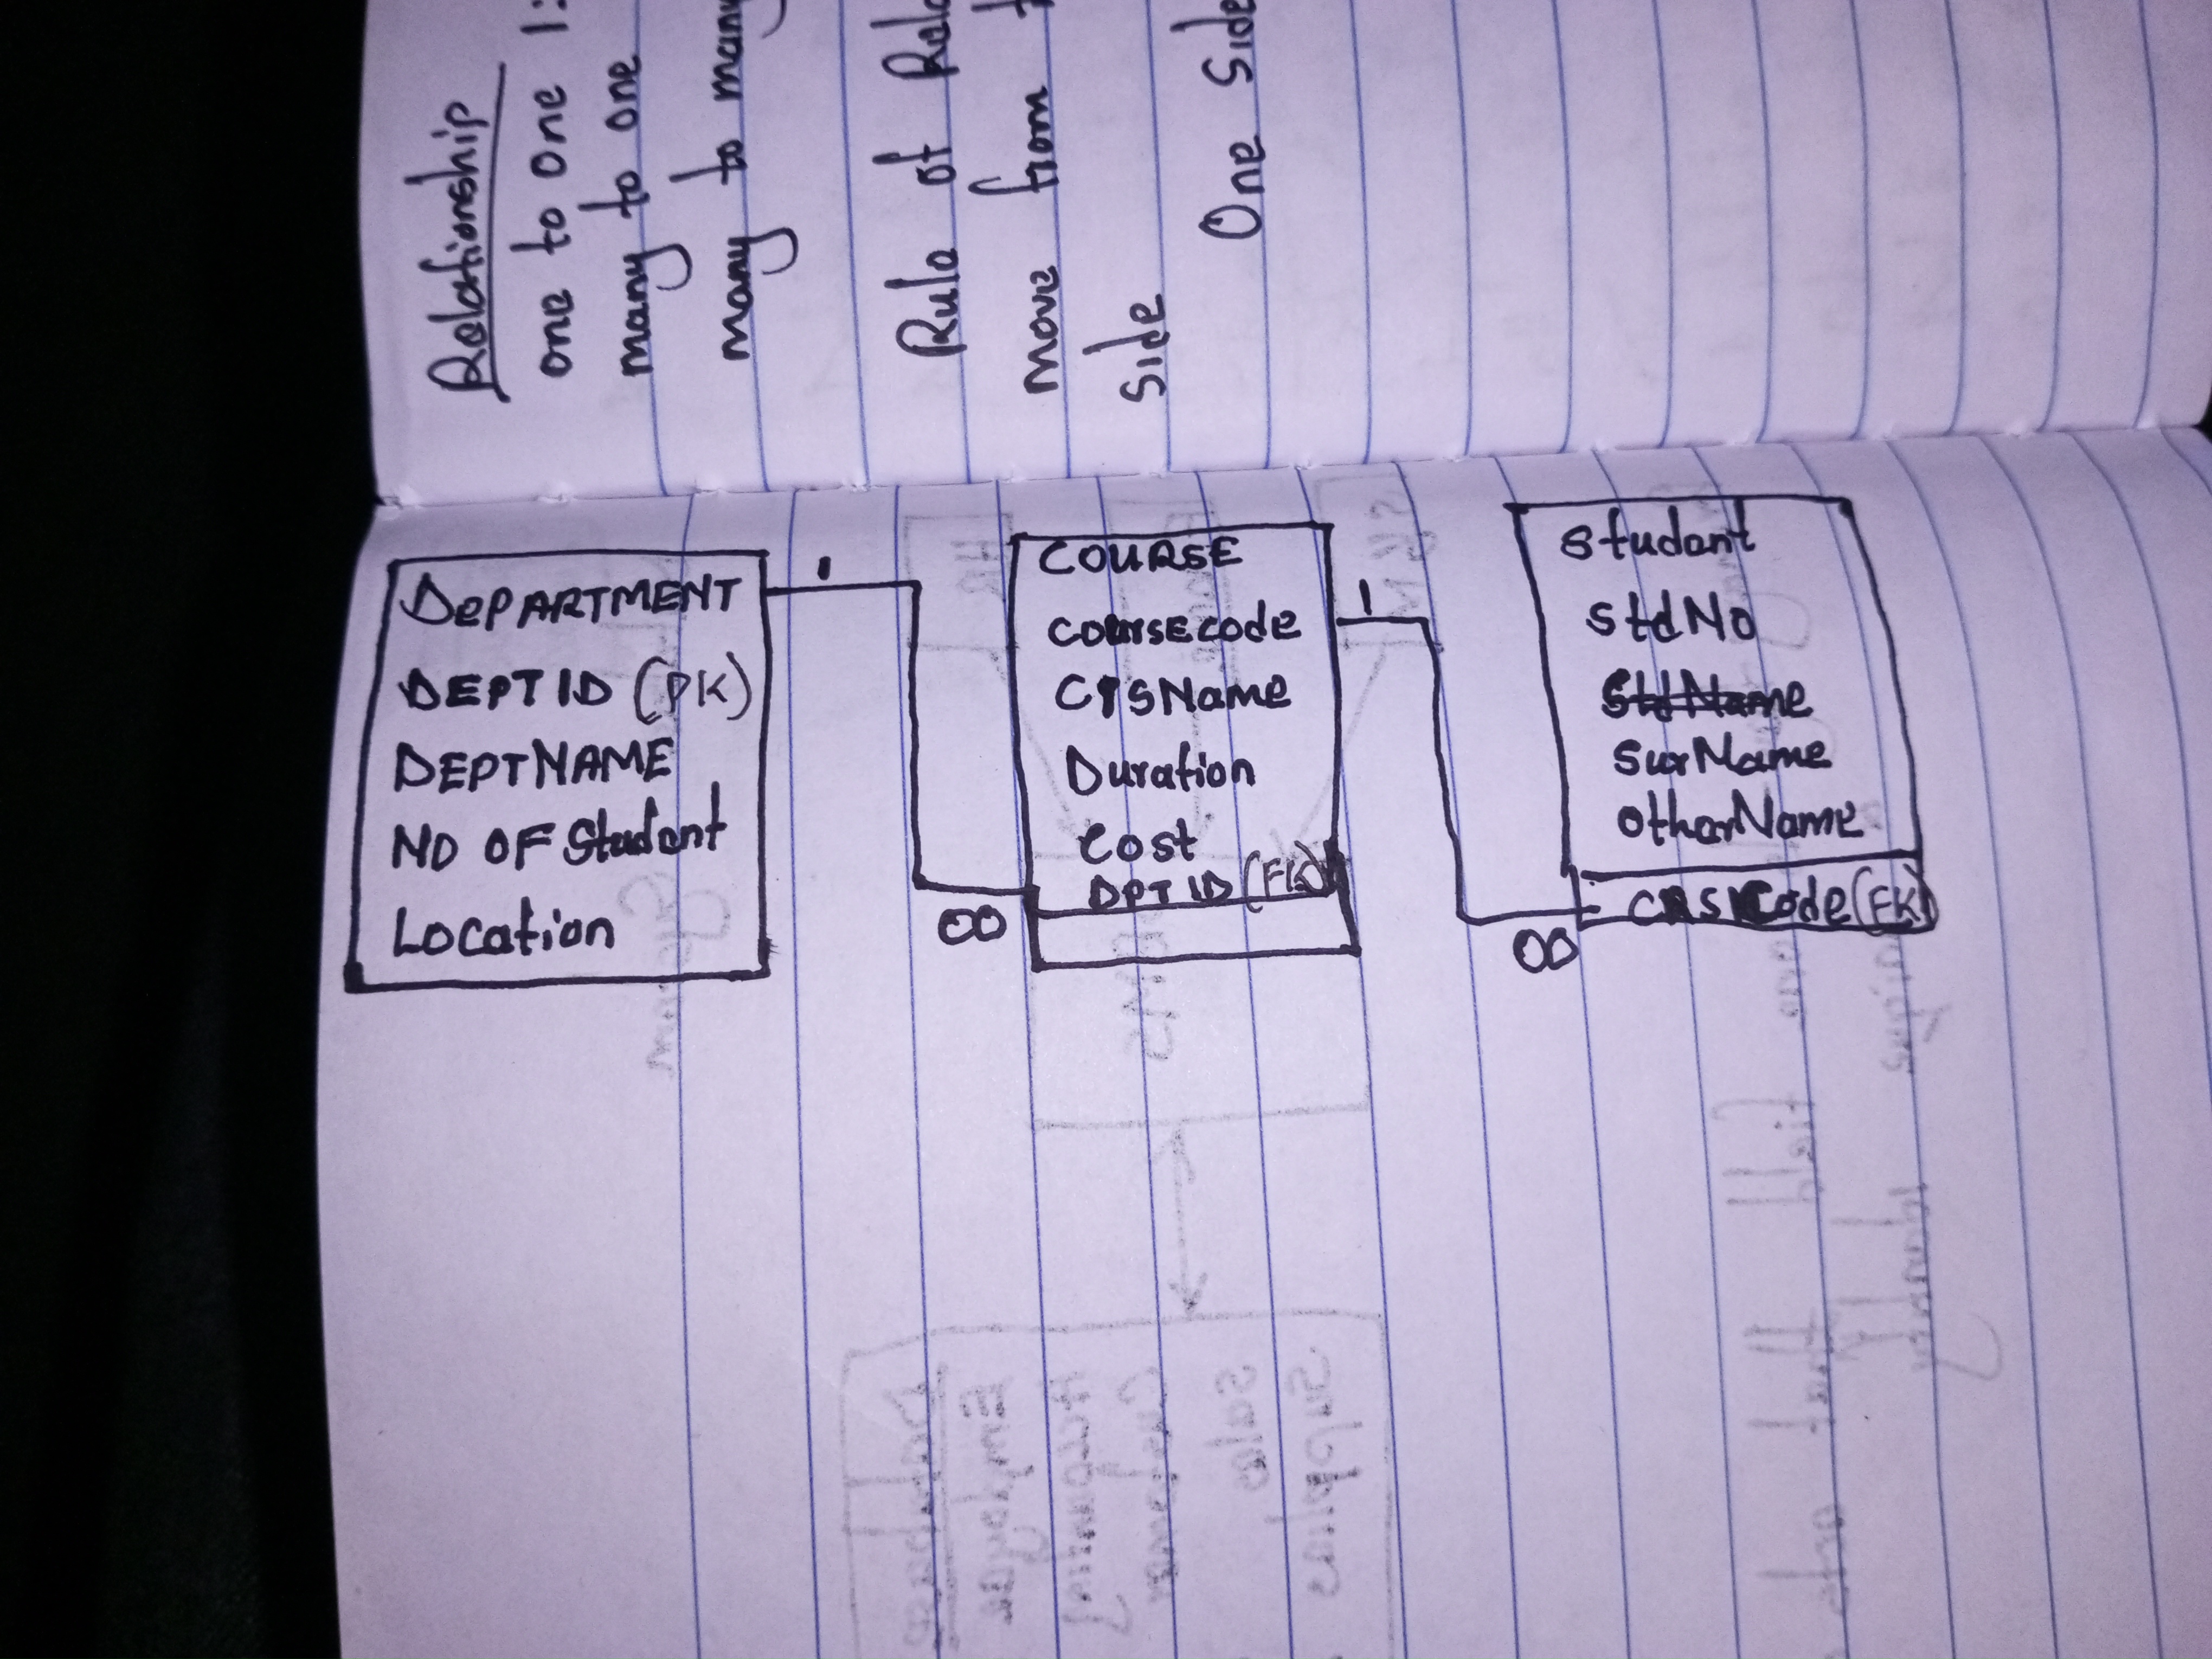 Relationship
one to one 1:
many to one
many to many
Rule of
move from
side
One Side
DePARTMENT
DEPT ID (PK)
DEPTNAME
NO OF Student
Location
1
OO
COURSE
COURSECODE
CRSName
Duration
Cost
DPT ID (FK)
1
OO
Student
StdNo
StdName
SurName
otherName
CRSCode (FK)